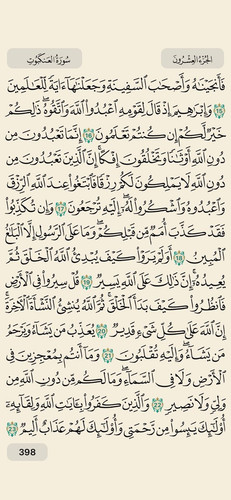 الجزء العشرون سورة العنكبوت
فَأَنجَيْنَٰهُ وَأَصْحَٰبَ ٱلسَّفِينَةِ وَجَعَلْنَٰهَآ ءَايَةً لِّلْعَٰلَمِينَ
15 وَإِبْرَٰهِيمَ إِذْ قَالَ لِقَوْمِهِ ٱعْبُدُوا۟ ٱللَّهَ وَٱتَّقُوهُ ۖ ذَٰلِكُمْ
خَيْرٌ لَّكُمْ إِن كُنتُمْ تَعْلَمُونَ 16 إِنَّمَا تَعْبُدُونَ مِن
دُونِ ٱللَّهِ أَوْثَٰنًا وَتَخْلُقُونَ إِفْكًا ۚ إِنَّ ٱلَّذِينَ تَعْبُدُونَ مِن
دُونِ ٱللَّهِ لَا يَمْلِكُونَ لَكُمْ رِزْقًا فَٱبْتَغُوا۟ عِندَ ٱللَّهِ ٱلرِّزْقَ
وَٱعْبُدُوهُ وَٱشْكُرُوا۟ لَهُۥٓ ۖ إِلَيْهِ تُرْجَعُونَ 17 وَإِن تُكَذِّبُوا۟
فَقَدْ كَذَّبَ أُمَمٌ مِّن قَبْلِكُمْ ۖ وَمَا عَلَى ٱلرَّسُولِ إِلَّا ٱلْبَلَٰغُ
ٱلْمُبِينُ 18 أَوَلَمْ يَرَوْا۟ كَيْفَ يُبْدِئُ ٱللَّهُ ٱلْخَلْقَ ثُمَّ
يُعِيدُهُۥٓ ۚ إِنَّ ذَٰلِكَ عَلَى ٱللَّهِ يَسِيرٌ 19 قُلْ سِيرُوا۟ فِى ٱلْأَرْضِ
فَٱنظُرُوا۟ كَيْفَ بَدَأَ ٱلْخَلْقَ ۚ ثُمَّ ٱللَّهُ يُنشِئُ ٱلنَّشْأَةَ ٱلْءَاخِرَةَ ۚ
إِنَّ ٱللَّهَ عَلَىٰ كُلِّ شَىْءٍ قَدِيرٌ 20 يُعَذِّبُ مَن يَشَآءُ وَيَرْحَمُ
مَن يَشَآءُ ۖ وَإِلَيْهِ تُقْلَبُونَ 21 وَمَآ أَنتُم بِمُعْجِزِينَ فِى
ٱلْأَرْضِ وَلَا فِى ٱلسَّمَآءِ ۖ وَمَا لَكُم مِّن دُونِ ٱللَّهِ مِن
وَلِىٍّ وَلَا نَصِيرٍ 22 وَٱلَّذِينَ كَفَرُوا۟ بِـَٔايَٰتِ ٱللَّهِ وَلِقَآئِهِۦٓ
أُو۟لَٰٓئِكَ يَئِسُوا۟ مِن رَّحْمَتِى وَأُو۟لَٰٓئِكَ لَهُمْ عَذَابٌ أَلِيمٌ 23
398